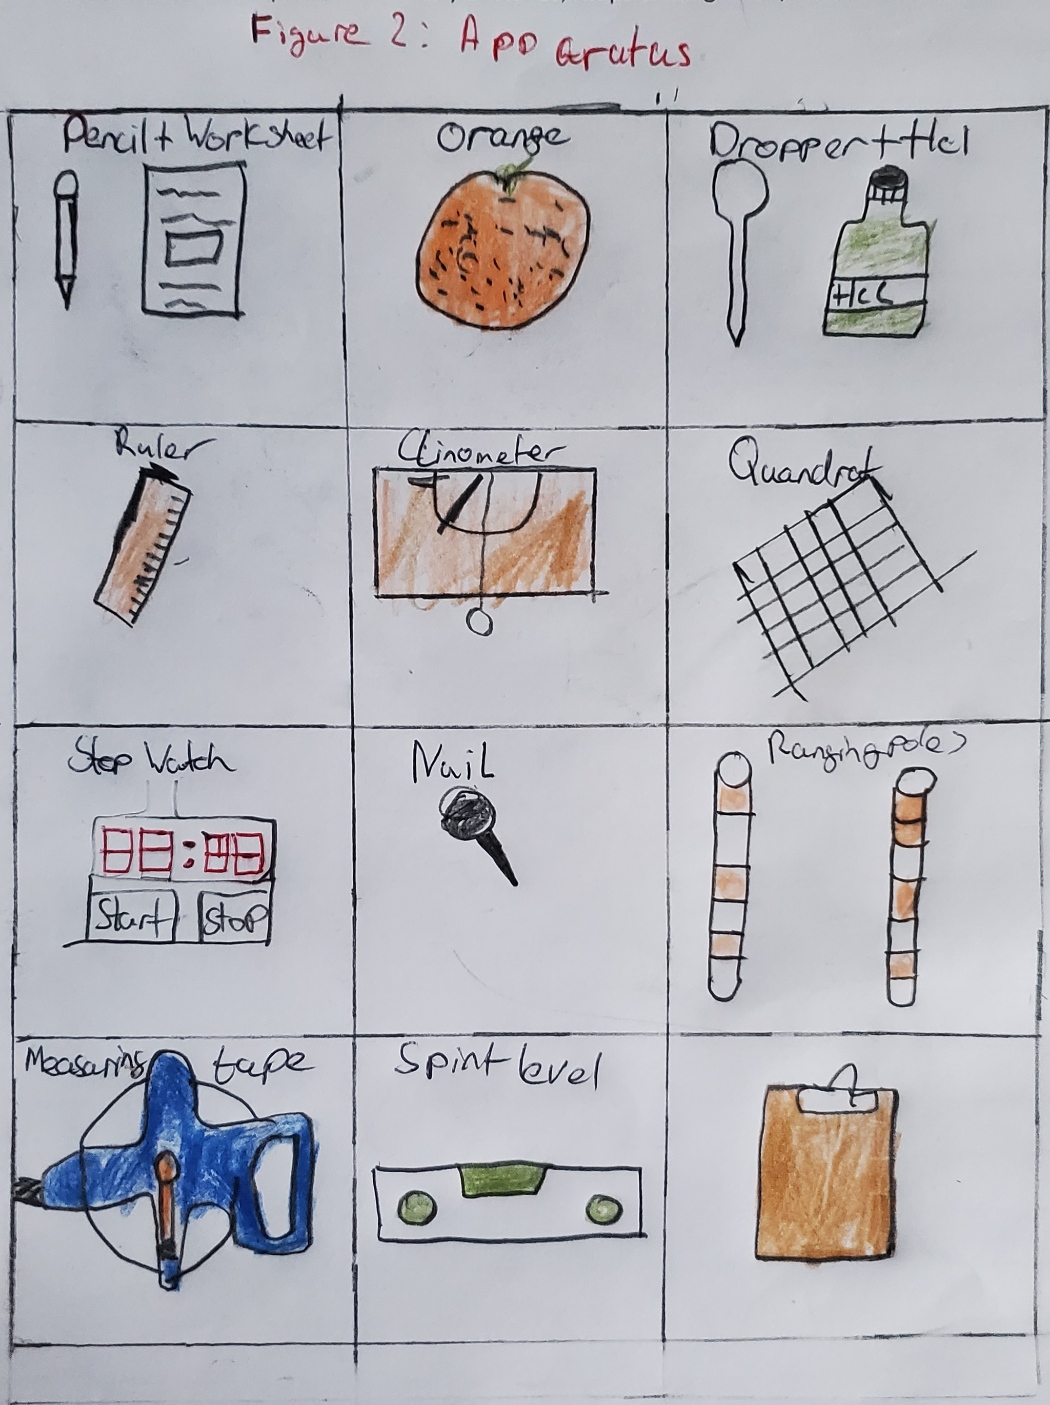 Figure 2: Apparatus
Pencil + Worksheet
Orange
Dropper + Hcl
Hcl
Ruler
Clinometer
Quandrat
Stop Watch
Start
Stop
Nail
Ranging poles
Measuring tape
Spirit level